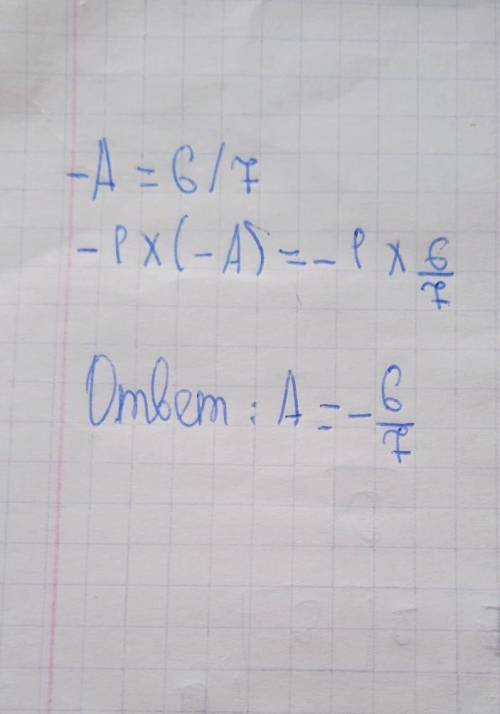 -A = 6/7
-1 × (-A) = -1 × 6/7
Ответ: A = -6/7